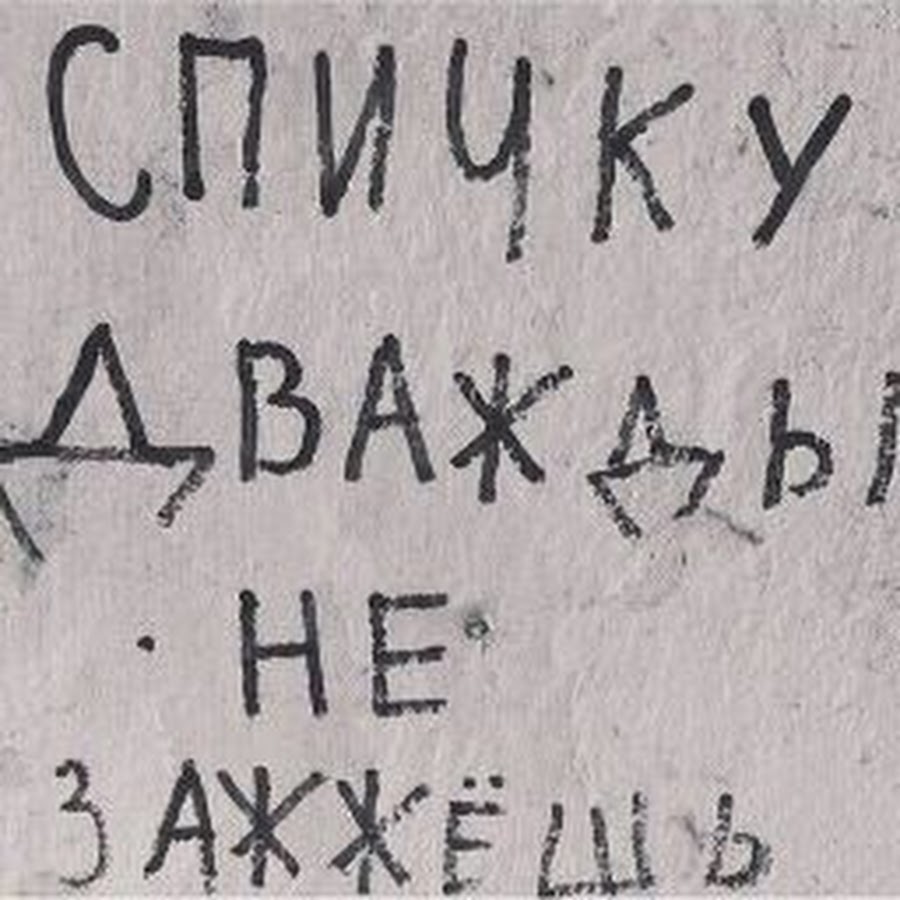 СПИЧКУ
ДВАЖДЫ
НЕ
ЗАЖЖЁШЬ